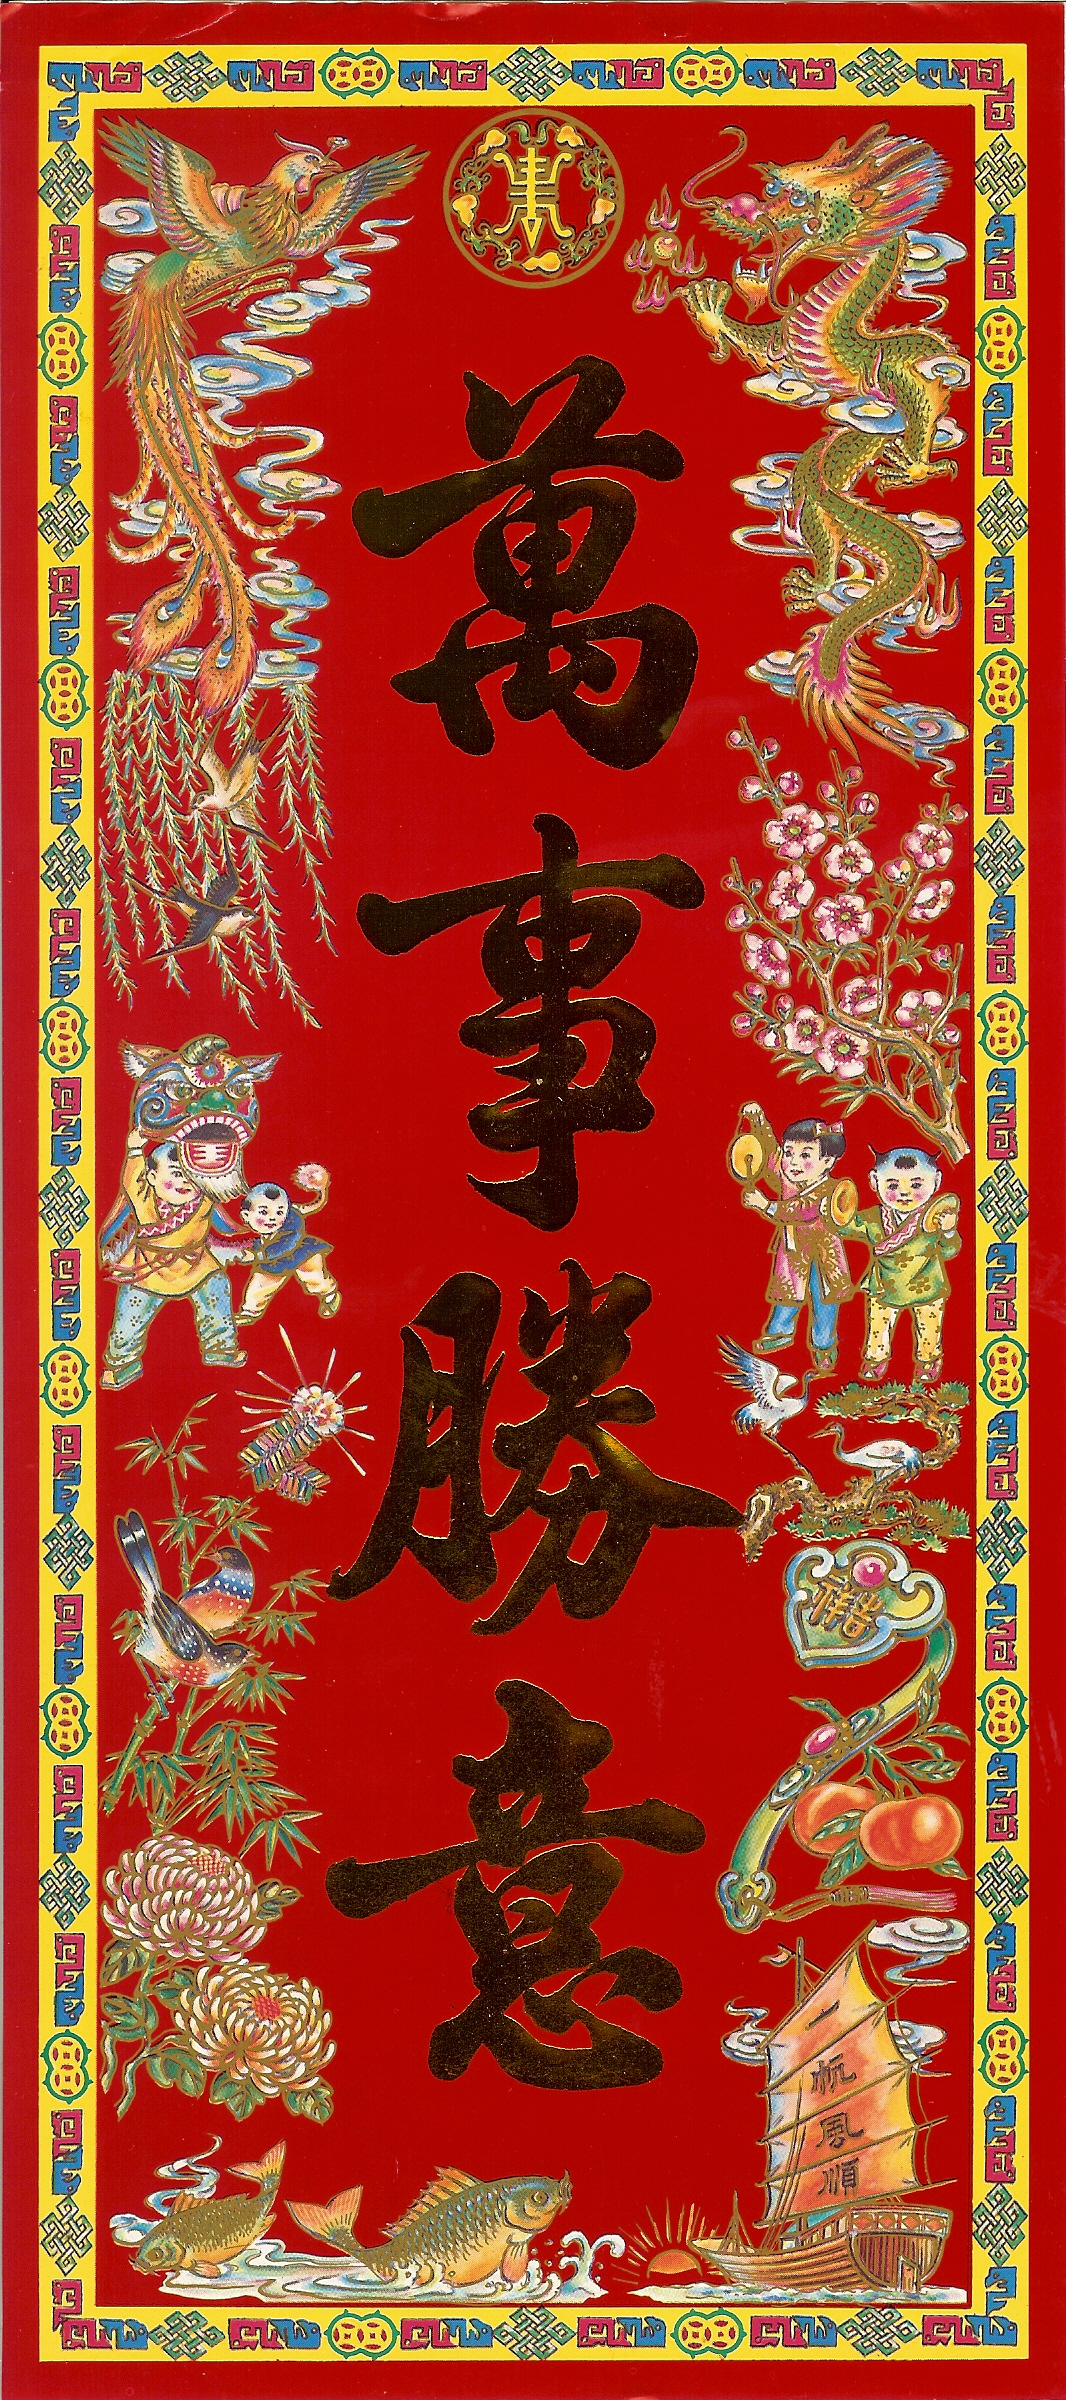 萬事勝意
吉祥
一帆風順